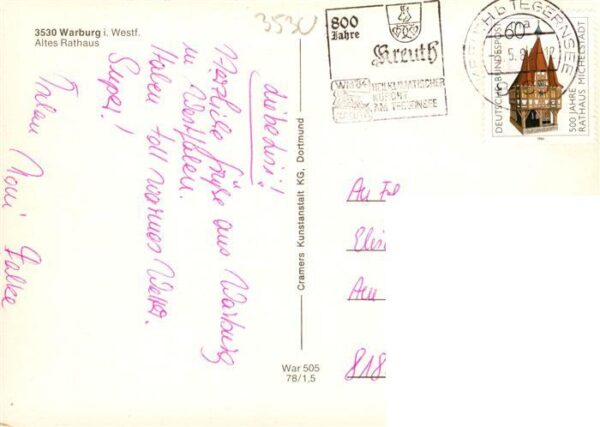 3530 Warburg i. Westf.
Altes Rathaus
3530
Liebe Lissi!
Herzliche Grüße aus Warburg
in Westfalen.
Haben toll warmes Wetter.
Super!
Moni Falke
Cramers Kunstanstalt KG, Dortmund
War 505
78/1,5
800
Jahre
Kreuth
HEILKLIMATISCHER
KURORT
AM TEGERNSEE
TEGERNSEE
60
DEUTSCHE BUNDESPOST
500 JAHRE
RATHAUS MICHELSTADT
An
Elis
Am
818